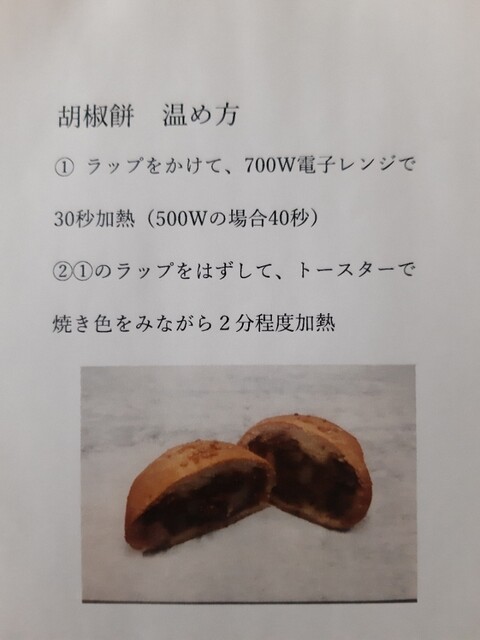 胡椒餅　温め方
① ラップをかけて、700W電子レンジで
30秒加熱（500Wの場合40秒）
②①のラップをはずして、トースターで
焼き色をみながら２分程度加熱